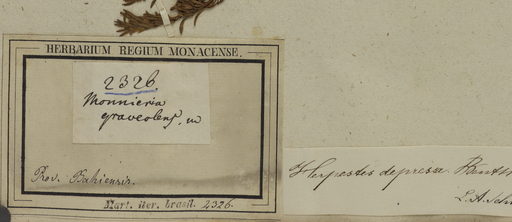 HERBARIUM REGIUM MONACENSE.
2326.
Monnieria
graveolens, m
Prov. Bahiensis.
Mart. iter. brasil. 2326.
Herpestes depressa Benth
L.A. Schm